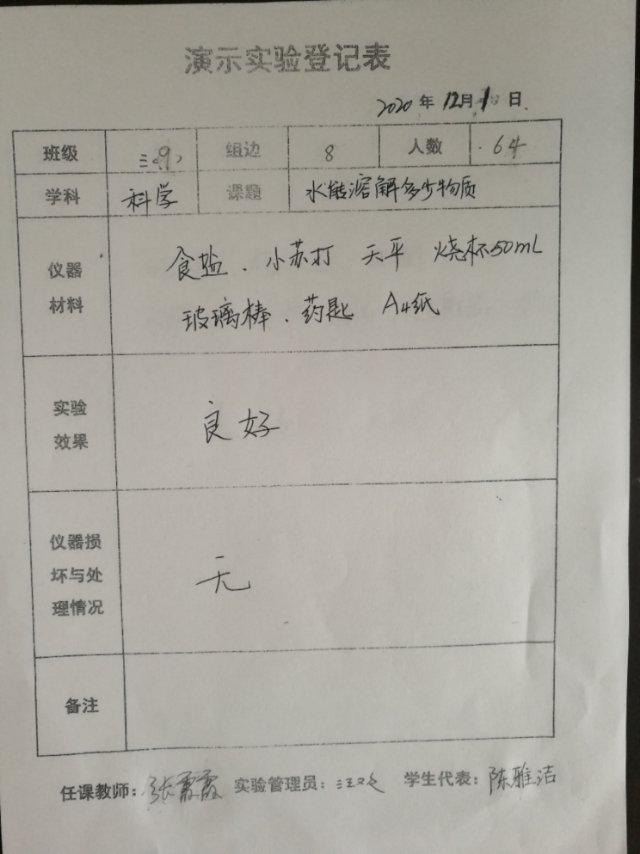 演示实验登记表
2020 年 12月 1 日
班级 三(9) 组边 8 人数 64
学科 科学 课题 水能溶解多少物质
仪器
材料
食盐、小苏打 天平 烧杯50mL
玻璃棒、药匙 A4纸
实验
效果
良好
仪器损
坏与处
理情况
无
备注
任课教师: 张霞霞 实验管理员: 学生代表: 陈雅洁